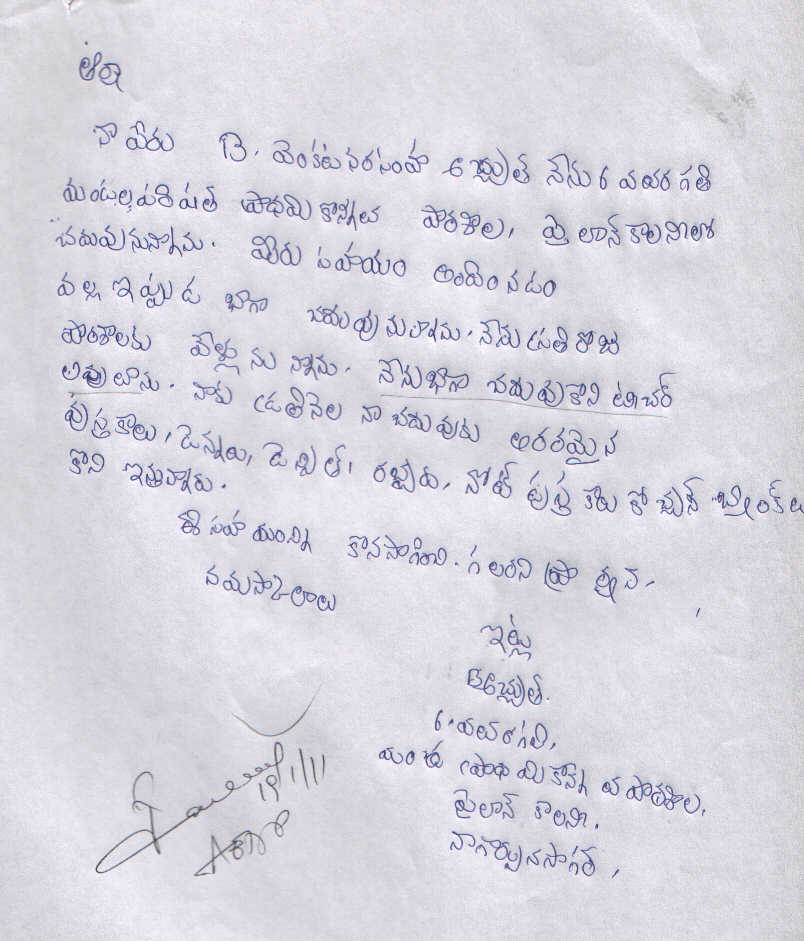 నా పేరు B. వెంకటనరసింహ అచ్యుత్ నేను 6 వ తరగతి
మండల పరిషత్ ప్రాథమికోన్నత పాఠశాల, పైలాన్ కాలనీలో
చదువునున్నాను. మీరు సహాయం అందించడం
వల్ల ఇప్పుడు బాగా చదువు నేను ప్రతి రోజు
పాఠశాలకు నేను బాగా చదువుకొని టీచర్
అవుతాను. నాకు ప్రతినెల నా చదువుకు అవసరమైన
పుస్తకాలు, పెన్నులు, పెన్సిల్, రబ్బరు, నోట్ పుస్తకాలు
కొని ఇస్తున్నారు.
ఈ సహాయాన్ని కొనసాగించ గలరని ప్రార్థన.
నమస్కారాలు
ఇట్లు
B అచ్యుత్.
6. వ తరగతి,
ప్రాథమికోన్నత పాఠశాల,
పైలాన్ కాలనీ.
నాగార్జునసాగర్,
19/1/11